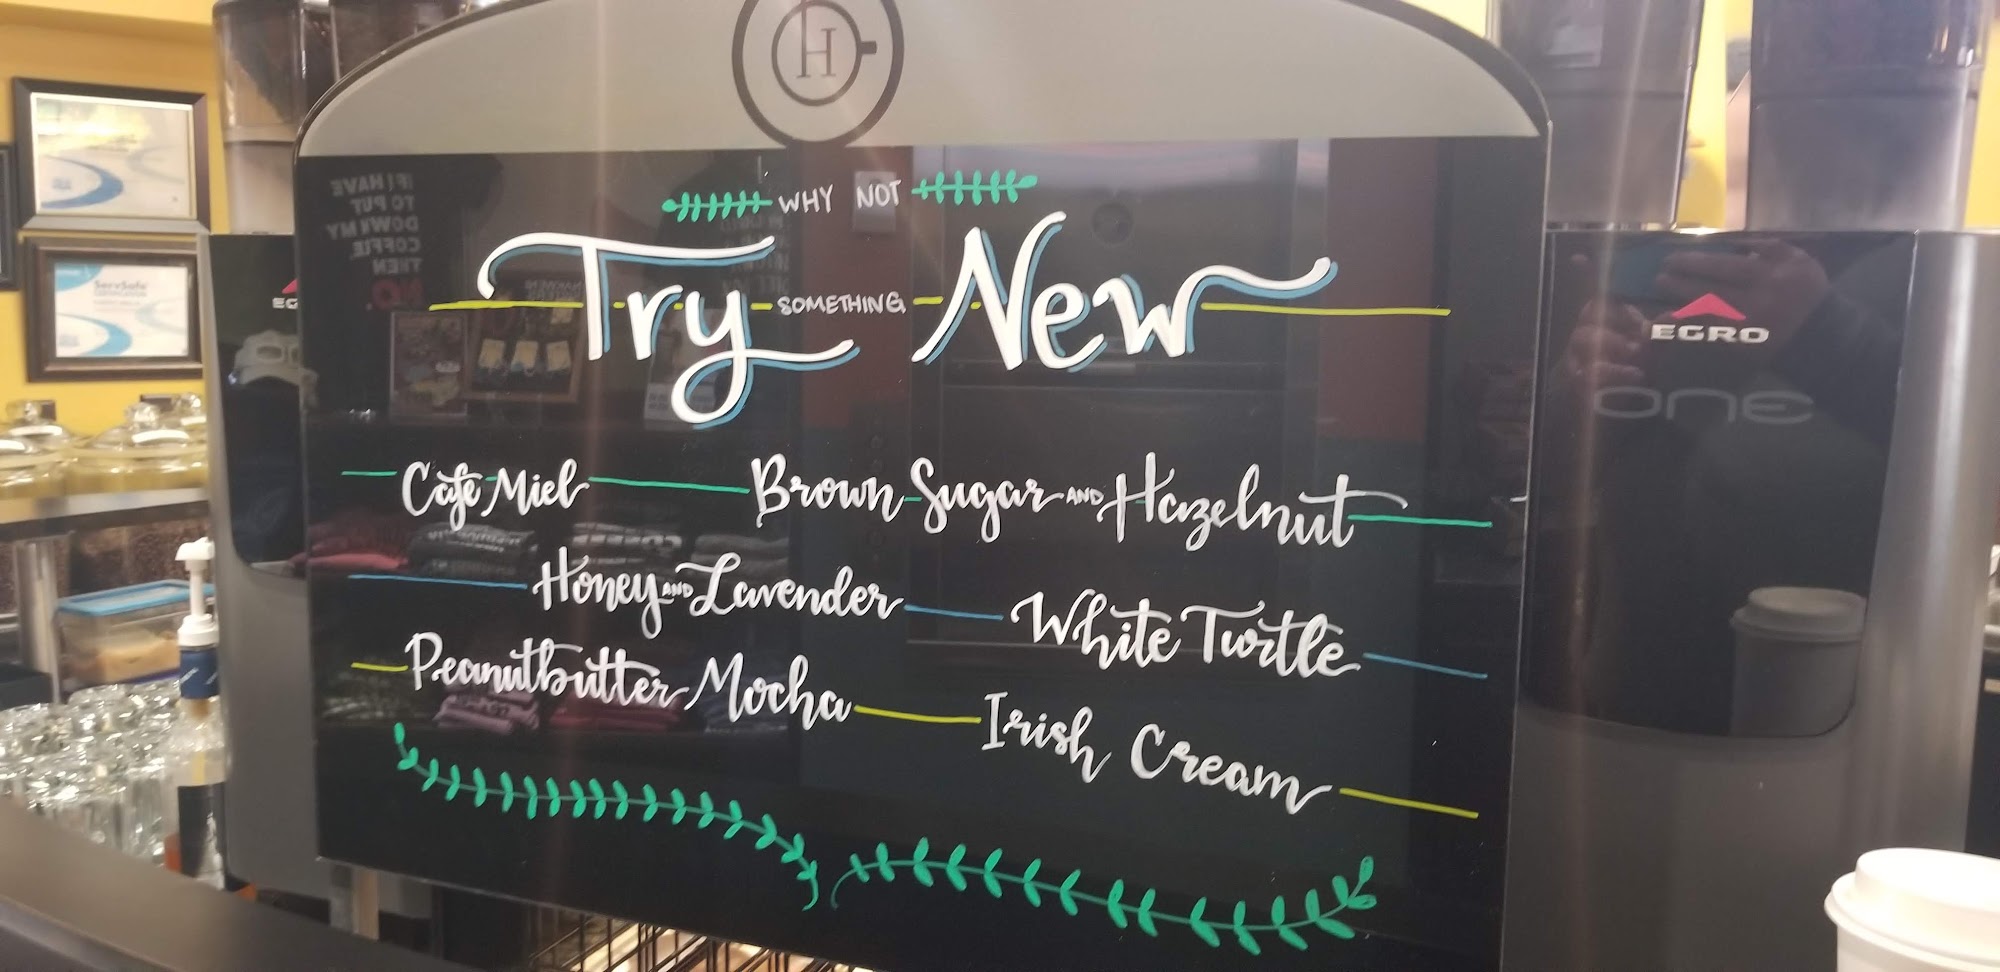 H
WHY NOT
Try SOMETHING New
Cafe Miel
Brown Sugar AND Hazelnut
Honey AND Lavender
White Turtle
Peanutbutter Mocha
Irish Cream
EGRO
ONE
EG
ServSafe
CERTIFICATION
IF I HAVE
TO PUT
DOWN MY
COFFEE,
THEN
NO.